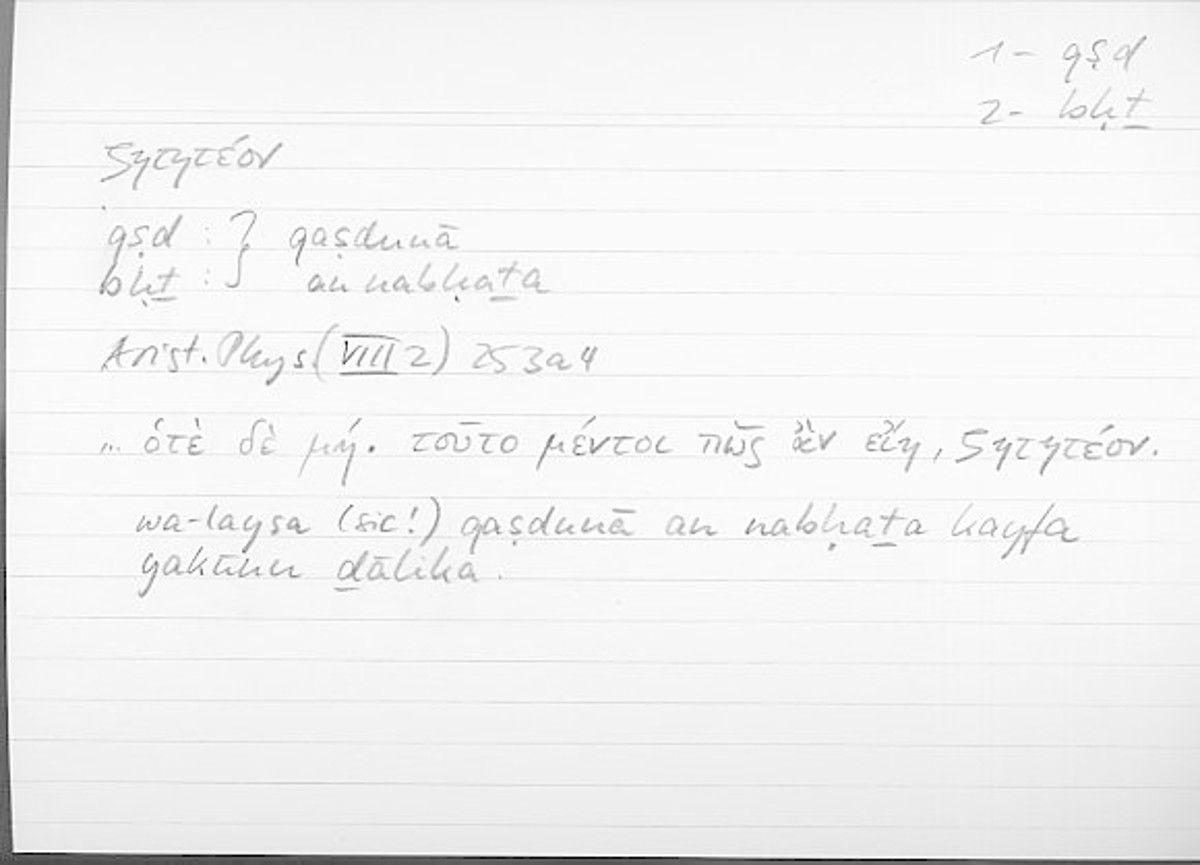 1 - qṣd
2 - bḥṯ
ζητητέον
qṣd : } qaṣdunā
bḥṯ : } an nabḥaṯa
Arist. Phys. (VIII 2) 253a4
... ὁτὲ δὲ μή. τοῦτο μέντοι πῶς ἂν εἴη, ζητητέον.
wa-laysa (sic!) qaṣdunā an nabḥaṯa kayfa
yakūnu ḏālika.